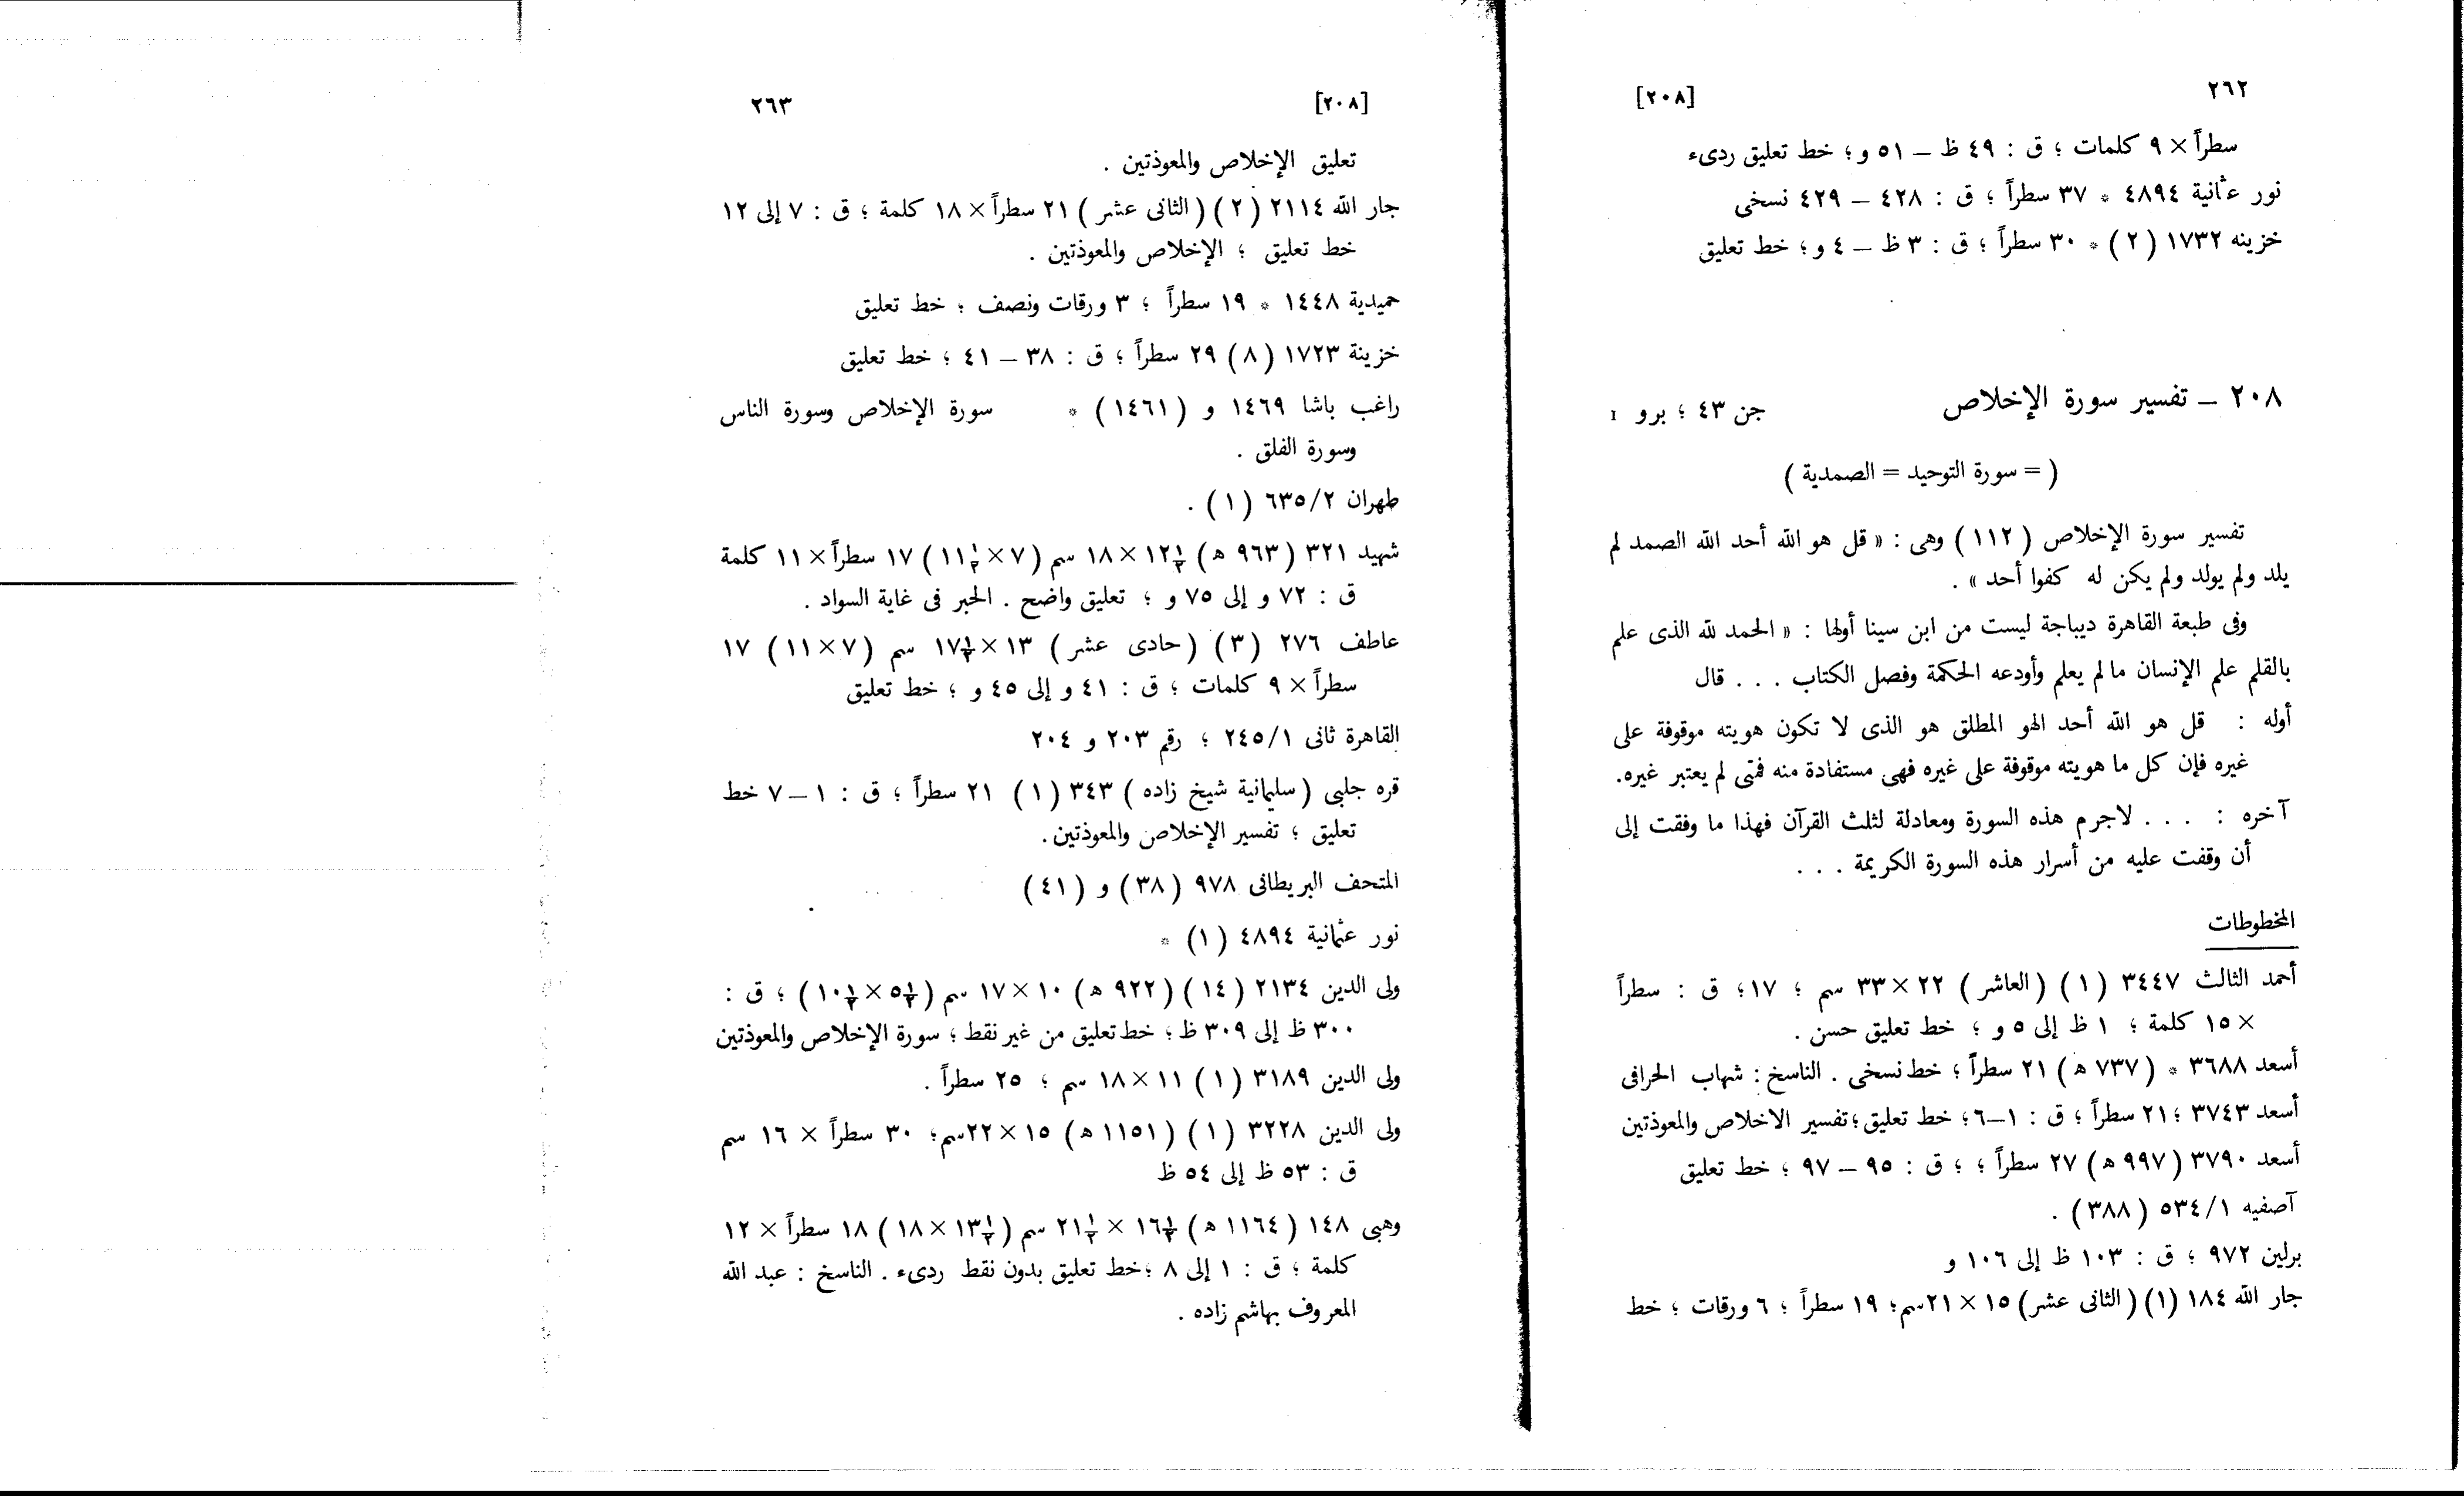 ٢٦٢ [٢٠٨]
سطراً × ٩ كلمات ؛ ق : ٤٩ ظ – ٥١ و ؛ خط تعليق ردىء
نور عثمانية ٤٨٩٤ * ٣٧ سطراً ؛ ق : ٤٢٨ – ٤٢٩ نسخى
خزينه ١٧٣٢ (٢) * ٣٠ سطراً ؛ ق : ٣ ظ – ٤ و ؛ خط تعليق
٢٠٨ – تفسير سورة الإخلاص جن ٤٣ ؛ برو I
( = سورة التوحيد = الصمدية )
تفسير سورة الإخلاص ( ١١٢ ) وهى : « قل هو الله أحد الله الصمد لم
يلد ولم يولد ولم يكن له كفوا أحد » .
وفى طبعة القاهرة ديباجة ليست من ابن سينا أولها : « الحمد لله الذى علم
بالقلم علم الإنسان مالم يعلم وأودعه الحكمة وفصل الكتاب . . . قال
أوله : قل هو الله أحد الهو المطلق هو الذى لا تكون هويته موقوفة على
غيره فإن كل ما هويته موقوفة على غيره فهى مستفادة منه فمتى لم يعتبر غيره.
آخره : . . . لاجرم هذه السورة ومعادلة لثلث القرآن فهذا ما وفقت إلى
أن وقفت عليه من أسرار هذه السورة الكريمة . . .
المخطوطات
أحمد الثالث ٣٤٤٧ (١) (العاشر) ٢٢ × ٣٣ سم ؛ ١٧ ؛ ق : سطراً
× ١٥ كلمة ؛ ١ ظ إلى ٥ و ؛ خط تعليق حسن .
أسعد ٣٦٨٨ * ( ٧٣٧ ه ) ٢١ سطراً ؛ خط نسخى . الناسخ : شهاب الحرافى
أسعد ٣٧٤٣ ؛ ٢١ سطراً ؛ ق : ١–٦ ؛ خط تعليق ؛ تفسير الاخلاص والمعوذتين
أسعد ٣٧٩٠ (٩٩٧ ه) ٢٧ سطراً ؛ ؛ ق : ٩٥ – ٩٧ ؛ خط تعليق
آصفيه ٥٣٤/١ (٣٨٨) .
برلين ٩٧٢ ؛ ق : ١٠٣ ظ إلى ١٠٦ و
جار الله ١٨٤ (١) (الثانى عشر) ١٥ × ٢١سم؛ ١٩ سطراً ؛ ٦ ورقات ؛ خط
[٢٠٨] ٢٦٣
تعليق الإخلاص والمعوذتين .
جار الله ٢١١٤ (٢) (الثانى عشر) ٢١ سطراً × ١٨ كلمة ؛ ق : ٧ إلى ١٢
خط تعليق ؛ الإخلاص والمعوذتين .
حميدية ١٤٤٨ * ١٩ سطراً ؛ ٣ ورقات ونصف ؛ خط تعليق
خزينة ١٧٢٣ (٨) ٢٩ سطراً ؛ ق : ٣٨ – ٤١ ؛ خط تعليق
راغب باشا ١٤٦٩ و (١٤٦١) * سورة الإخلاص وسورة الناس
وسورة الفلق .
طهران ٦٣٥/٢ (١) .
شهيد ٣٢١ (٩٦٣ ه) ١٢½ × ١٨ سم (٧ × ١١½) ١٧ سطراً × ١١ كلمة
ق : ٧٢ و إلى ٧٥ و ؛ تعليق واضح . الحبر فى غاية السواد .
عاطف ٢٧٦ (٣) (حادى عشر) ١٣ × ١٧½ سم (٧ × ١١) ١٧
سطراً × ٩ كلمات ؛ ق : ٤١ و إلى ٤٥ و ؛ خط تعليق
القاهرة ثانى ٢٤٥/١ ؛ رقم ٢٠٣ و ٢٠٤
قره جلبى (سليمانية شيخ زاده) ٣٤٣ (١) ٢١ سطراً ؛ ق : ١–٧ خط
تعليق ؛ تفسير الإخلاص والمعوذتين.
المتحف البريطانى ٩٧٨ (٣٨) و (٤١)
نور عثمانية ٤٨٩٤ (١) *
ولى الدين ٢١٣٤ (١٤) (٩٢٢ ه) ١٠ × ١٧ سم (٥½ × ١٠½) ؛ ق :
٣٠٠ ظ إلى ٣٠٩ ظ ؛ خط تعليق من غير نقط ؛ سورة الإخلاص والمعوذتين
ولى الدين ٣١٨٩ (١) ١١ × ١٨ سم ؛ ٢٥ سطراً .
ولى الدين ٣٢٢٨ (١) (١١٥١ ه) ١٥ × ٢٢سم؛ ٣٠ سطراً × ١٦ سم
ق : ٥٣ ظ إلى ٥٤ ظ
وهبى ١٤٨ (١١٦٤ ه) ١٦½ × ٢١½ سم (١٣½ × ١٨) ١٨ سطراً × ١٢
كلمة ؛ ق : ١ إلى ٨ ؛ خط تعليق بدون نقط ردىء . الناسخ : عبد الله
المعروف بهاشم زاده .